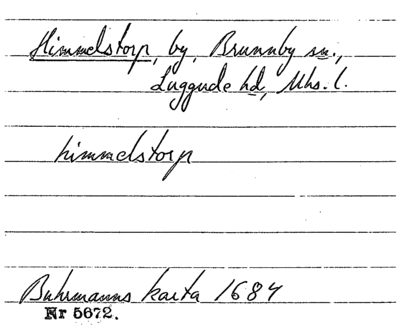 Himmelstorp, by, Brunnby sn.,
Luggude hd, Mhs. l.
himmelstorp
Buhrmanns karta 1684
Nr 5672.